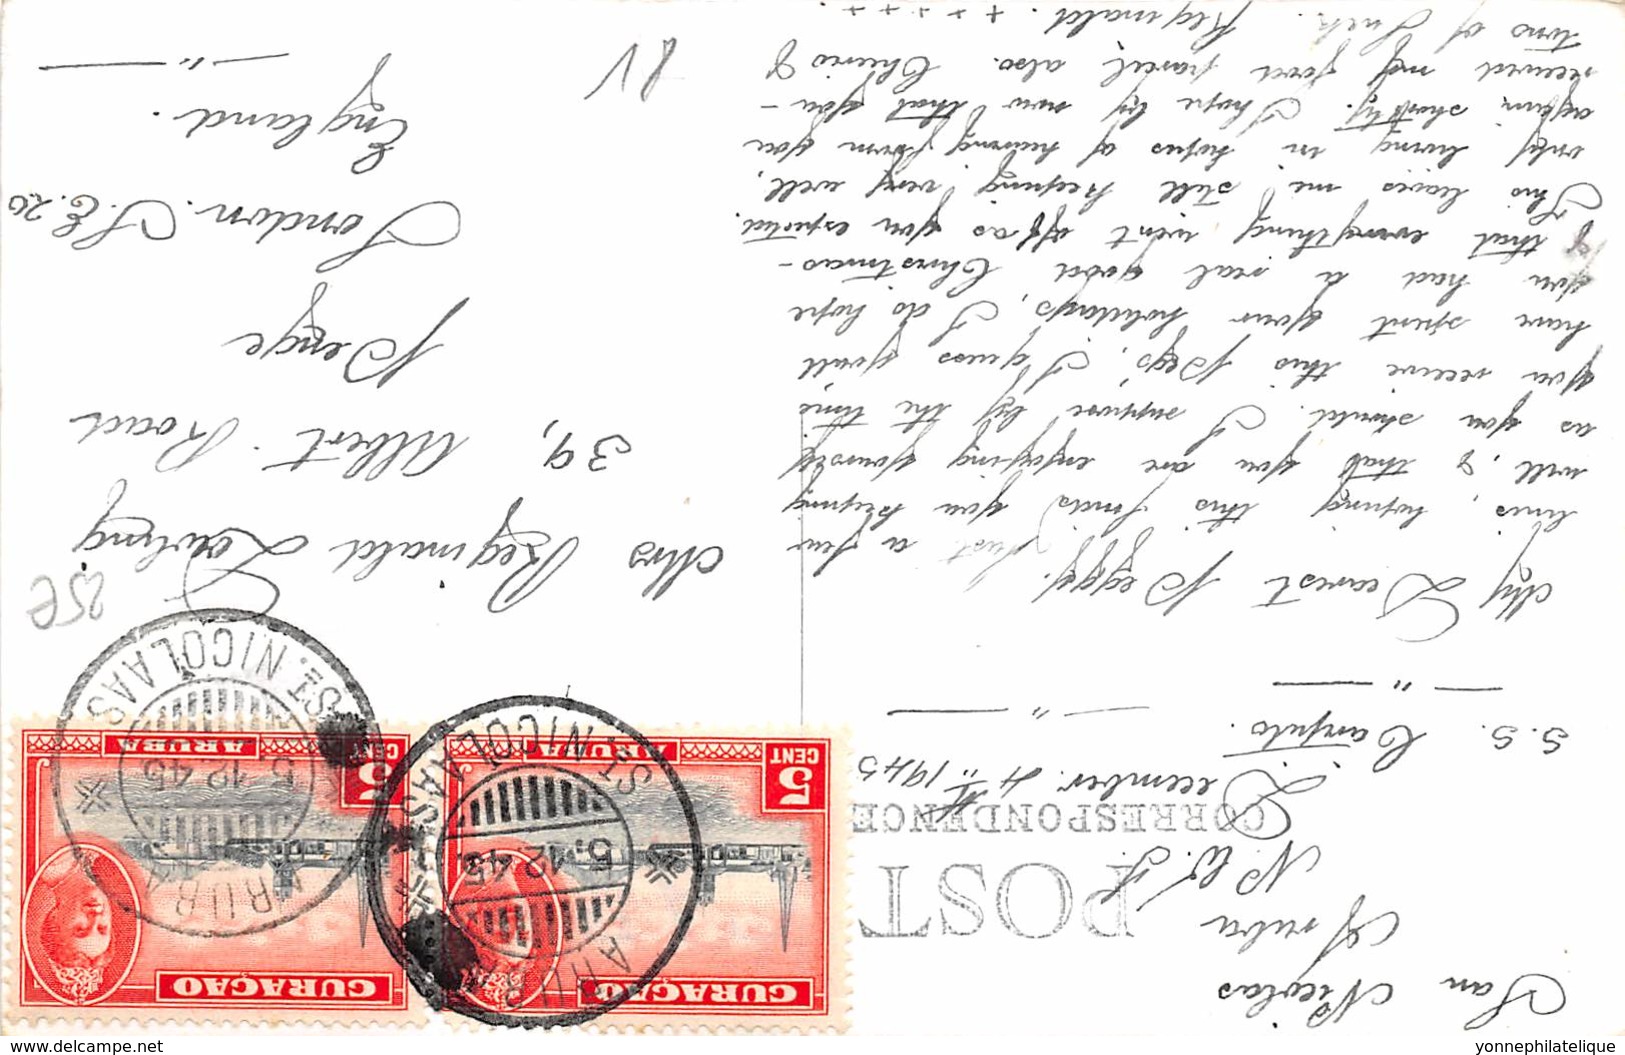 San Nicolas
Aruba
N.W.I.
POST
CORRESPONDENCE
December. 4th 1945
S.S. 
— " —
— " —
My Dearest Peggy. Just a few
lines, hoping this finds you keeping
well, & that you are enjoying yourself
as you should. I suppose by the time
you receive this Peg's, I guess you'll
have spent your holidays, I do hope
you had a real good Christmas –
& that everything went off as you expected.
This leaves me still keeping very well,
only living in hopes of hearing from you
again shortly. I hope by now that you –
received my food parcel also. Cheerio &
tons of luck. Reginald. x x x x x
Mrs Reginald
39, Albert. Road
Penge
London. S.E.20
England.
— " —
25e
CURAÇAO
5
CENT
ARUBA
CURAÇAO
5
CENT
ARUBA
ARUBA
5.12.45
ST. NICOLAAS
ARUBA
5.12.45
ST. NICOLAAS
www.delcampe.net
yonnephilatelique